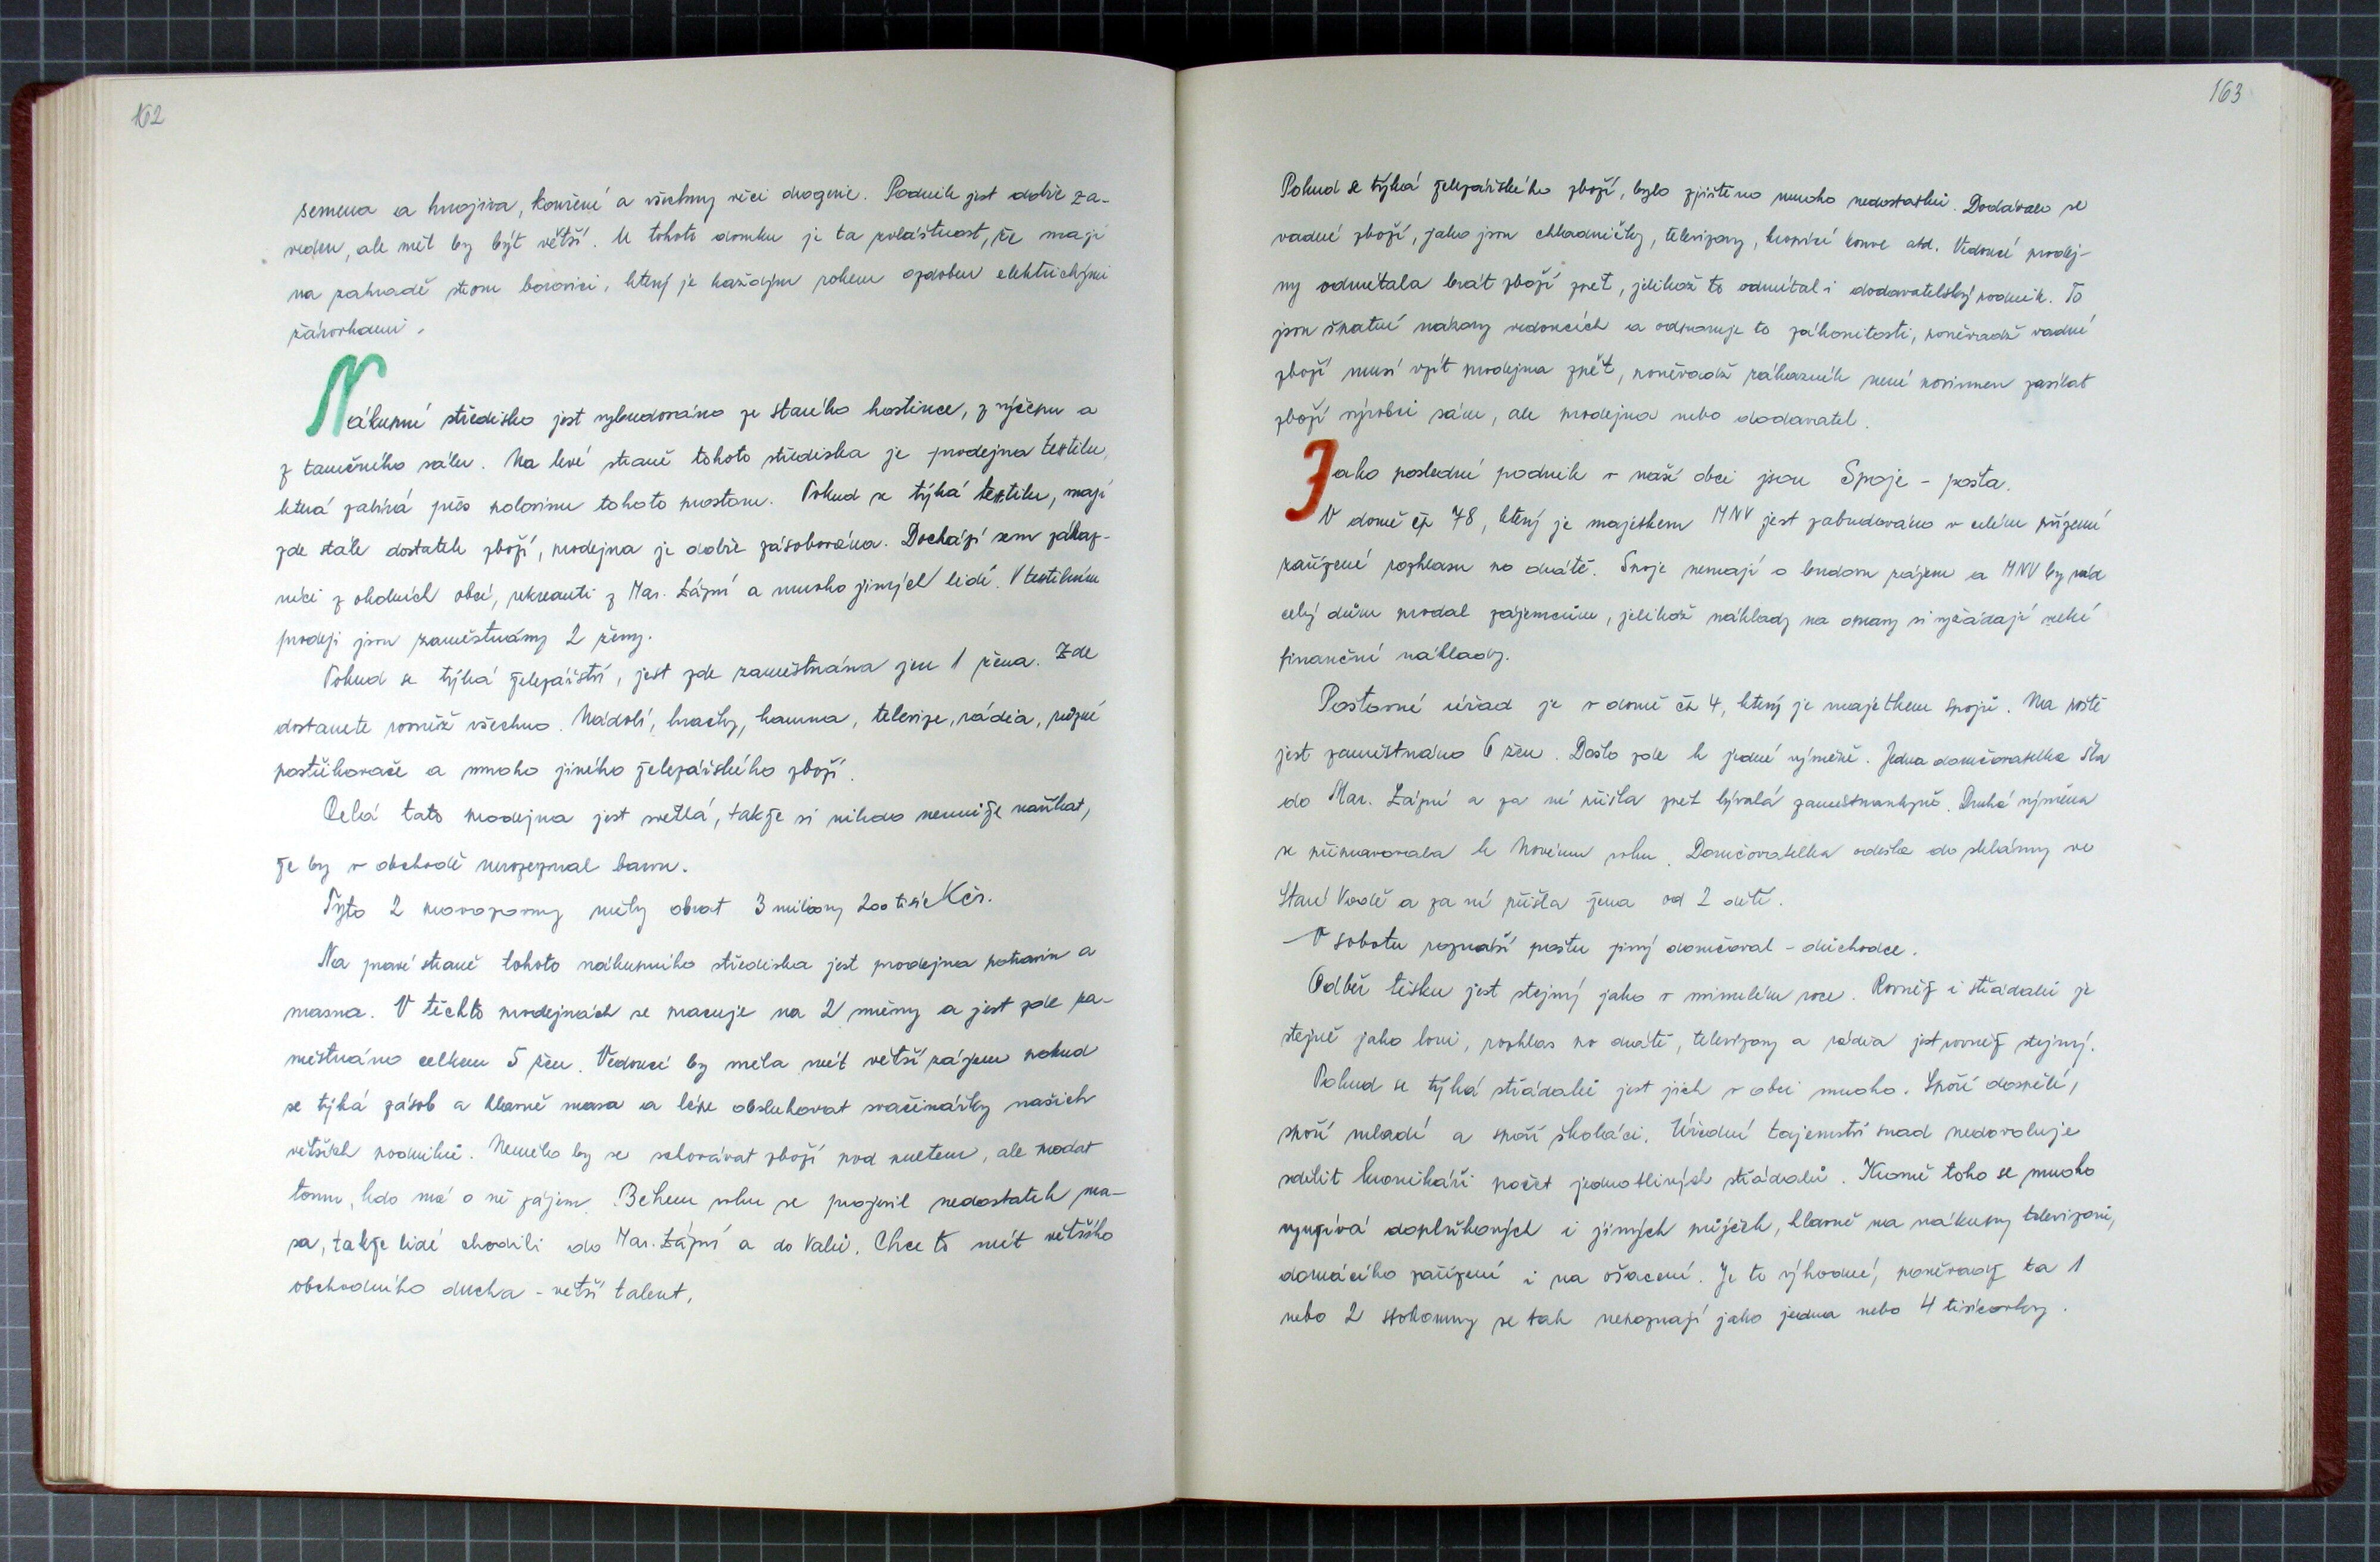 162
semena a hnojiva, koření a všechny věci drogerie. Podnik jest dobře za-
veden, ale měl by být větší. U tohoto domku je ta zvláštnost, že mají
na zahradě strom borovici, který je každým rokem ozdoben elektrickými
žárovkami.
Nákupní středisko jest vybudováno ze starého hostince, z výčepu a
z tanečního sálu. Na levé straně tohoto střediska je prodejna textilu,
která zabírá přes polovinu tohoto prostoru. Pokud se týká textilu, mají
zde stále dostatek zboží, prodejna je dobře zásobována. Dochází sem zákaz-
níci z okolních obcí, rekreanti z Mar. Lázní a mnoho jiných lidí. V textilním
prodeji jsou zaměstnány 2 ženy.
Pokud se týká železářství, jest zde zaměstnána jen 1 žena. Zde
dostanete rovněž všechno. Nádobí, hračky, kamna, televize, rádia, různé
postřikovače a mnoho jiného železářského zboží.
Celá tato prodejna jest světlá, takže si nikdo nemůže naříkat,
že by v obchodě nerozeznal barvu.
Tyto 2 provozovny měly obrat 3 miliony 200 tisíc Kčs.
Na pravé straně tohoto nákupního střediska jest prodejna potravin a
masna. V těchto prodejnách se pracuje na 2 směny a jest zde za-
městnáno celkem 5 žen. Vedoucí by měla mít větší zájem pokud
se týká zásob a hlavně masa a lépe obsluhovat svačinářky našich
větších podniků. Nemělo by se schovávat zboží pod pultem, ale prodat
tomu, kdo má o ně zájem. Během roku se projevil nedostatek ma-
sa, takže lidé chodili do Mar. Lázní a do Valů. Chce to mít většího
obchodního ducha - větší talent.
163
Pokud se týká železářského zboží, bylo zjištěno mnoho nedostatků. Dodávalo se
vadné zboží, jako jsou chladničky, televizory, kropící konve atd. Vedoucí prodej-
ny odmítala brát zboží zpět, jelikož to odmítal i dodavatelský podnik. To
jsou špatné názory vedoucích a odporuje to zákonitosti, poněvadž vadné
zboží musí vzít prodejna zpět, poněvadž zákazník není povinnen zasílat
zboží výrobci sám, ale prodejna nebo dodavatel.
Jako poslední podnik v naší obci jsou Spoje - pošta.
V domě čp 78, který je majetkem MNV jest zabudováno v celém přízemí
zařízení rozhlasu po drátě. Spoje nemají o budovu zájem a MNV by rád
celý dům prodal zájemcům, jelikož náklady na opravy si vyžádají velké
finanční náklady.
Poštovní úřad je v domě čp 4, který je majetkem spojů. Na poště
jest zaměstnáno 6 žen. Došlo zde k jedné výměně. Jedna doručovatelka šla
do Mar. Lázní a za ní přišla zpět bývalá zaměstnankyně. Druhá výměna
se připravovala k Novému roku. Doručovatelka odešla do sklárny ve
Staré Vodě a za ní přišla žena od 2 dětí.
V sobotu roznáší poštu jiný doručoval - důchodce.
Odběr tisku jest stejný jako v minulém roce. Rovněž i střádalů je
stejně jako loni, rozhlas po drátě, televizory a rádia jest rovněž stejný.
Pokud se týká střádalů jest jich v obci mnoho. Spoří dospělí,
spoří mladí a spoří školáci. Úřední tajemství snad nedovoluje
sdělit kronikáři počet jednotlivých střádalů. Kromě toho se mnoho
využívá doplňkových i jiných půjček, hlavně na nákupy televizorů,
domácího zařízení i na ošacení. Je to výhodné, poněvadž ta 1
nebo 2 stokoruny se tak nepoznají jako jedna nebo 4 tisícovky.